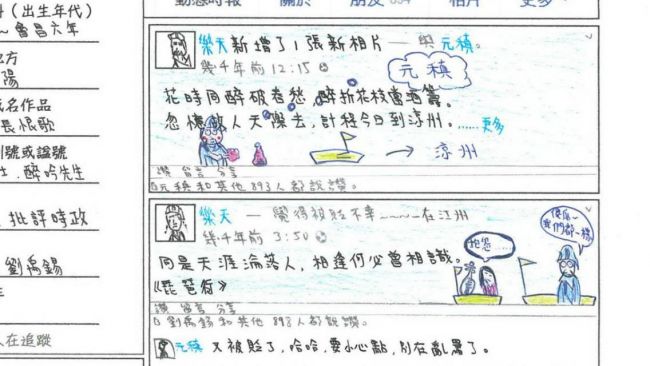 (出生年代)
~會昌六年
陽
名作品
長恨歌
別號或諡號
士、醉吟先生
批評時政
劉禹錫
人在追蹤
動態時報 關於 朋友 相片 更多
樂天新增了1張新相片 — 與元稹。
幾千年前 12:15
元稹
花時同醉破春愁 醉折花枝當酒籌。
忽憶故人天際去,計程今日到涼州。......更多
涼州
讚 留言 分享
元稹和其他893人都說讚。
樂天 — 覺得被貶不幸~~~~在江州
幾千年前 3:50
同是天涯淪落人,相逢何必曾相識。
《琵琶行》
抱怨......
傻瓜~
我們都一樣
讚 留言 分享
劉禹錫和其他893人都說讚。
元稹 又被貶了,哈哈,要小心點,別在亂罵了。